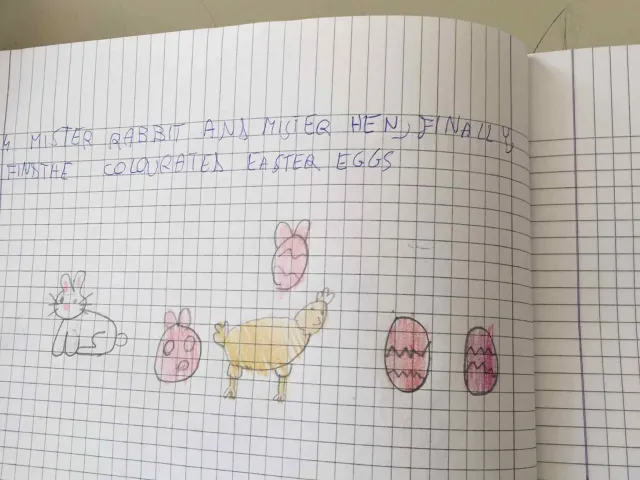 4 MISTER RABBIT AND MISTER HEN, FINALLY,
FIND THE COLOURATED EASTER EGGS